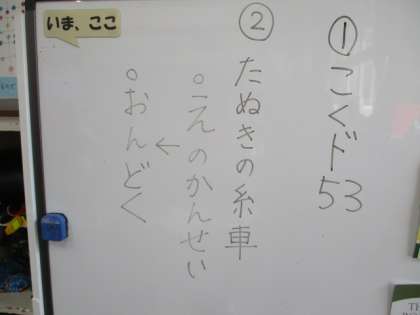 いま、ここ
① こくド53
② たぬきの糸車
。えのかんせい
←
。おんどく